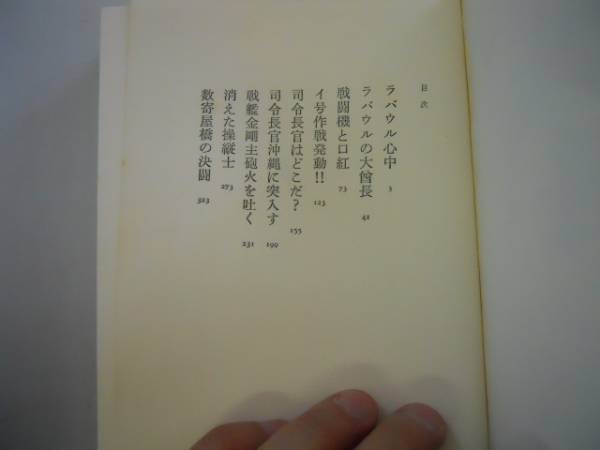 目次
ラバウル心中 3
ラバウルの大酋長 42
戦闘機と口紅 73
イ号作戦発動!! 123
司令長官はどこだ? 155
司令長官沖縄に突入す 199
戦艦金剛主砲火を吐く 231
消えた操縦士 273
数寄屋橋の決闘 323